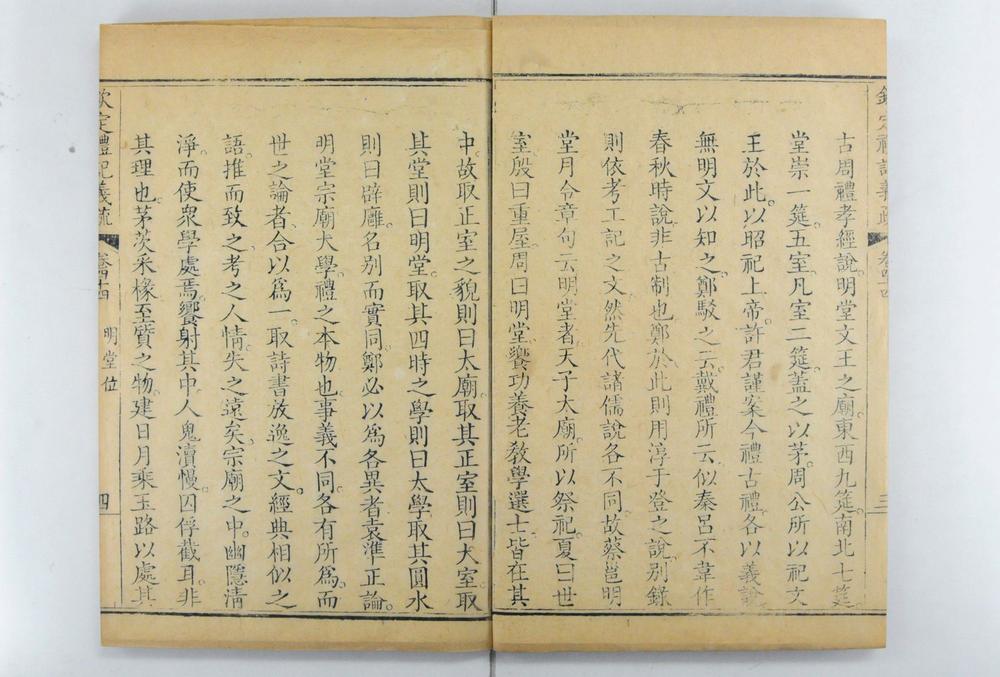 欽定禮記義疏
卷四十四
三
古周禮孝經說明堂文王之廟東西九筵南北七筵
堂崇一筵五室凡室二筵蓋之以茅周公所以祀文
王於此以昭祀上帝許君謹案今禮古禮各以義說
無明文以知之鄭駁之云戴禮所云似秦呂不韋作
春秋時說非古制也鄭於此則用淳于登之說別錄
則依考工記之文然先代諸儒說各不同故蔡邕明
堂月令章句云明堂者天子太廟所以祭祀夏曰世
室殷曰重屋周曰明堂饗功養老敎學選士皆在其
中故取正室之貌則曰太廟取其正室則曰大室取
其堂則曰明堂取其四時之學則曰太學取其圓水
則曰辟廱名別而實同鄭必以爲各異者袁準正論
明堂宗廟大學禮之本物也事義不同各有所爲而
世之論者合以爲一取詩書放逸之文經典相似之
語推而致之考之人情失之遠矣宗廟之中幽隱淸
淨而使衆學處焉饗射其中人鬼瀆慢囚俘截耳非
其理也茅茨采椽至質之物建日月乘玉路以處其
欽定禮記義疏
卷四十四
明堂位
四